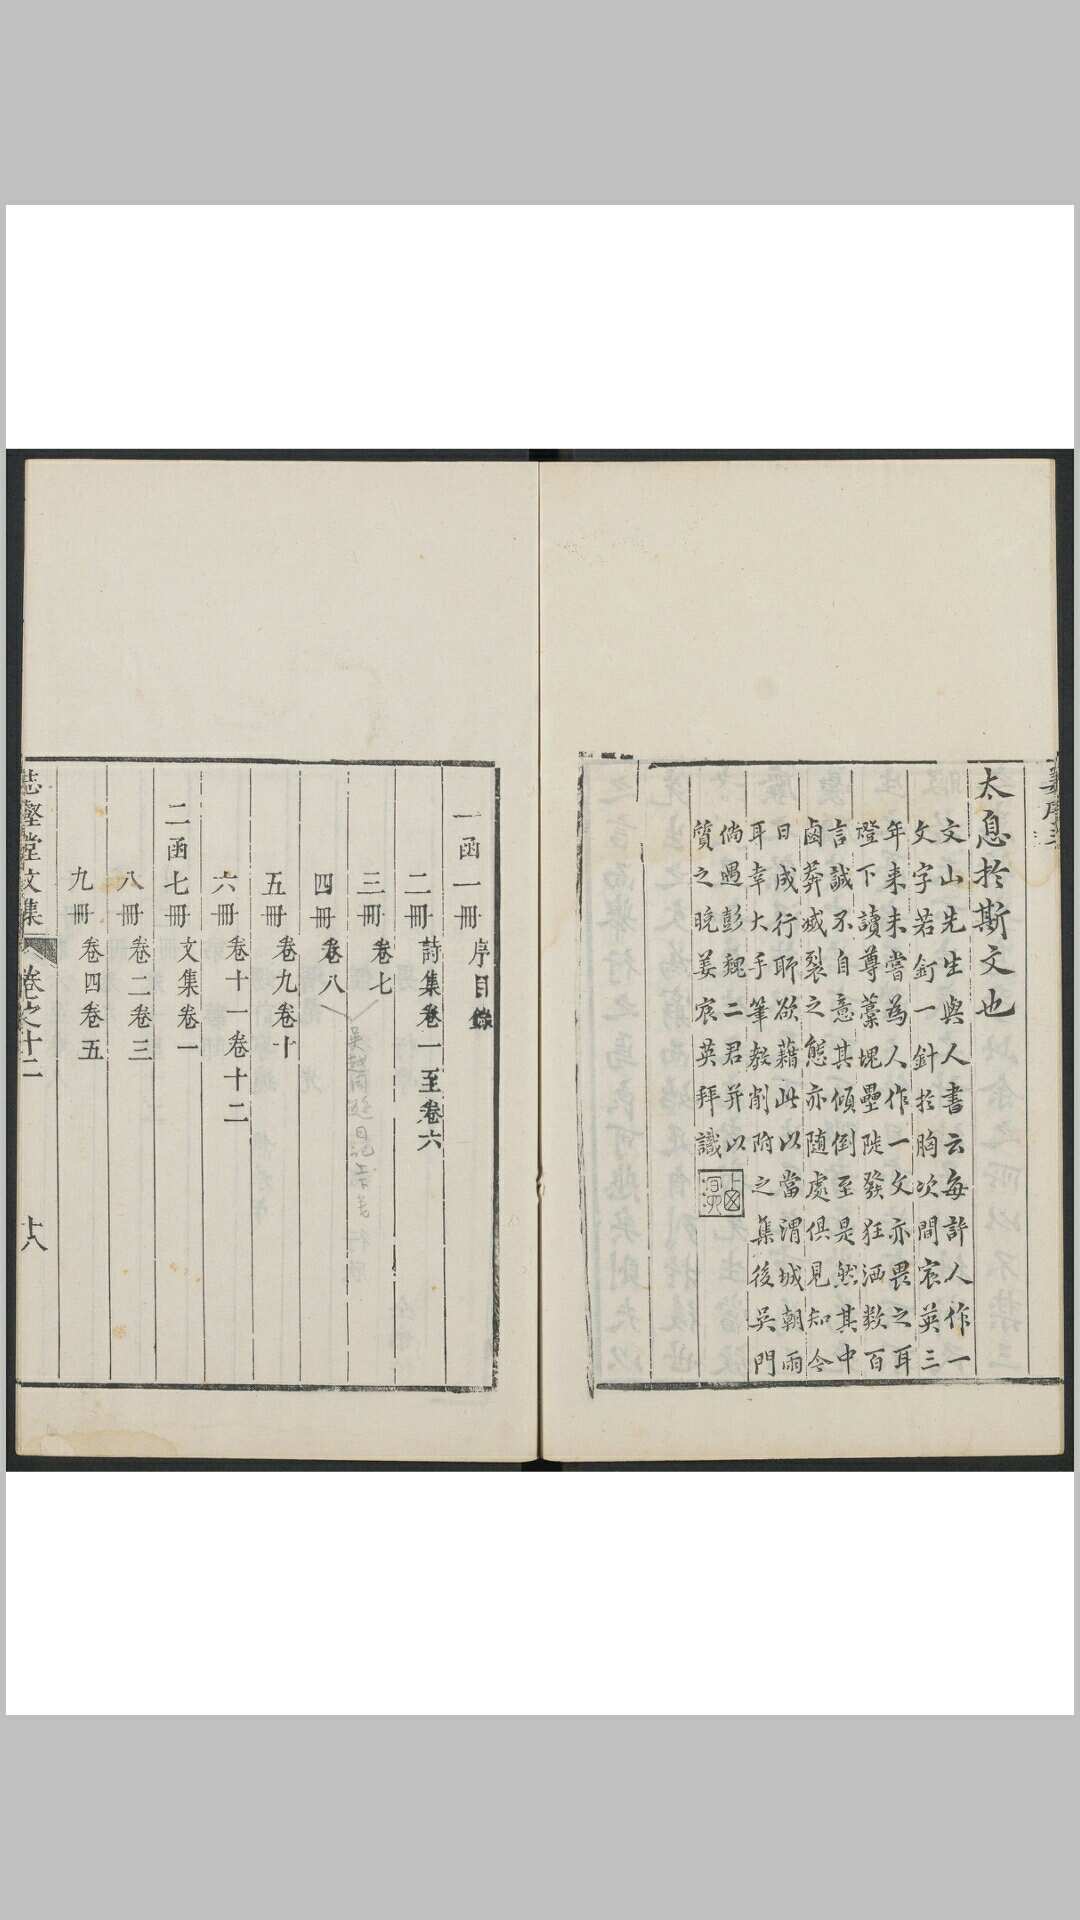 太息於斯文也
文山先生與人書云每許人作一
文字若釘一針於胸次間宸英三
年来未嘗為人作一文亦畏之耳
燈下讀尊藁塊壘陡發狂洒数百
言誠不自意其傾倒至是然其中
鹵莽滅裂之態亦随處俱見知今
日成行聊欲藉此以當渭城朝雨
耳幸大手筆教削附之集後吳門
倘遇彭魏二君并以
質之晚姜宸英拜識
一函一冊 序目錄
二冊 詩集卷一至卷六
三冊 卷七
四冊 卷八
五冊 卷九卷十
六冊 卷十一卷十二
二函七冊 文集卷一
八冊 卷二卷三
九冊 卷四卷五
志壑堂文集 卷之十二
十八